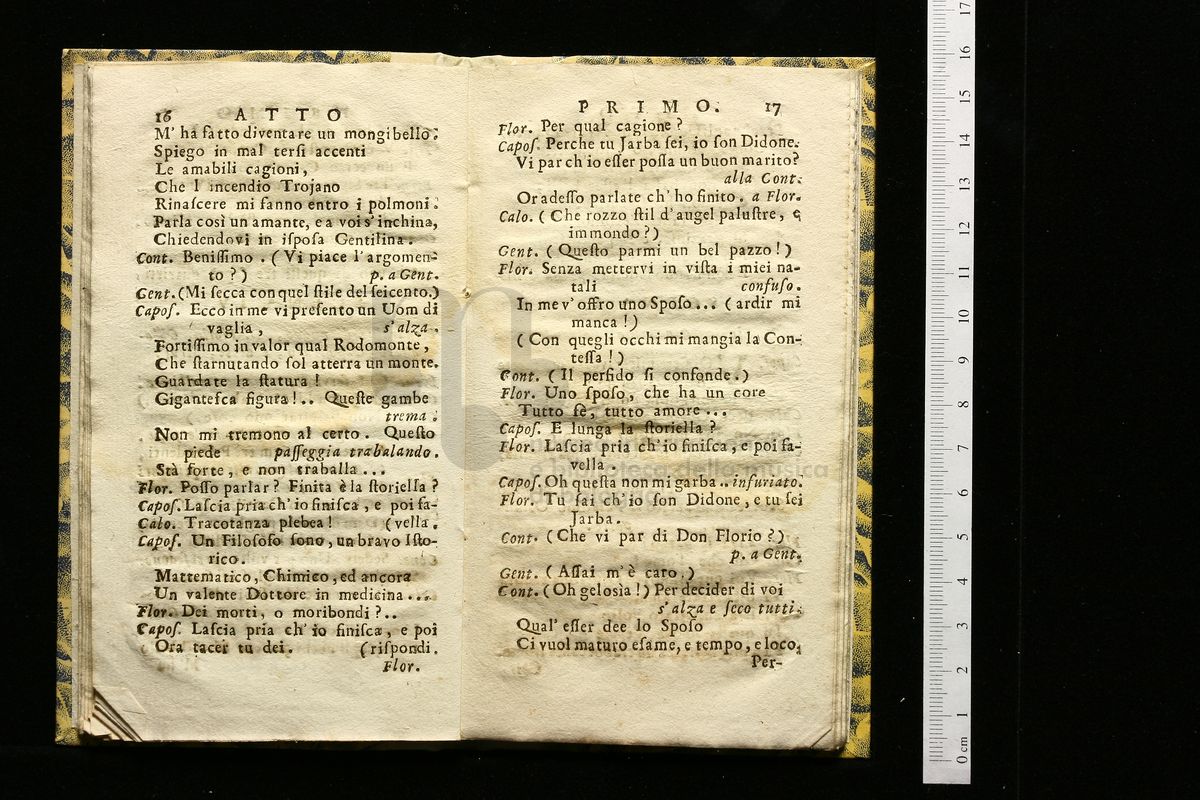 16 ATTO
M' ha fatto diventare un mongibello:
Spiego in mal tersi accenti
Le amabili cagioni,
Che l incendio Trojano
Rinaſcere mi fanno entro i polmoni.
Parla così un amante, e a voi s'inchina,
Chiedendovi in iſpoſa Gentilina.
Cont. Beniſſimo. (Vi piace l'argomen-
to?) p. a Gent.
Gent. (Mi ſecca con quel ſtile del ſeicento.)
Capoſ. Ecco in me vi preſento un Uom di
vaglia, s'alza.
Fortiſſimo in valor qual Rodomonte,
Che ſtarnutando ſol atterra un monte.
Guardate la ſtatura!
Giganteſca figura!.. Queſte gambe
trema.
Non mi tremono al certo. Queſto
piede paſſeggia trabalando.
Stà forte, e non traballa...
Flor. Poſſo parlar? Finita è la ſtoriella?
Capoſ. Laſcia pria ch'io finiſca, e poi fa-
Calo. Tracotanza plebea! (vella.
Capoſ. Un Filoſofo ſono, un bravo Iſto-
rico.
Mattematico, Chimico, ed ancora
Un valente Dottore in medicina...
Flor. Dei morti, o moribondi?..
Capoſ. Laſcia pria ch' io finiſca, e poi
Ora tacer tu dei. (riſpondi.
Flor.
PRIMO. 17
Flor. Per qual cagione?
Capoſ. Perche tu Jarba ſei, io ſon Didone.
Vi par ch io eſſer poſſa un buon marito?
alla Cont.
Or adeſſo parlate ch' ho finito. a Flor.
Calo. (Che rozzo ſtil d'augel paluſtre, e
immondo?)
Gent. (Queſto parmi un bel pazzo!)
Flor. Senza mettervi in viſta i miei na-
tali confuſo.
In me v'offro uno Spoſo... (ardir mi
manca!)
(Con quegli occhi mi mangia la Con-
teſſa!)
Cont. (Il perfido ſi confonde.)
Flor. Uno ſpoſo, che ha un core
Tutto fè, tutto amore...
Capoſ. E lunga la ſtoriella?
Flor. Laſcia pria ch'io finiſca, e poi fa-
vella.
Capoſ. Oh queſta non mi garba.. infuriato.
Flor. Tu ſai ch'io ſon Didone, e tu ſei
Jarba.
Cont. (Che vi par di Don Florio?)
p. a Gent.
Gent. (Aſſai m'è caro.)
Cont. (Oh gelosìa!) Per decider di voi
s'alza e ſeco tutti.
Qual' eſſer dee lo Spoſo
Ci vuol maturo eſame, e tempo, e loco,
Per-
e biblioteca della musica
0 cm 1 2 3 4 5 6 7 8 9 10 11 12 13 14 15 16 17